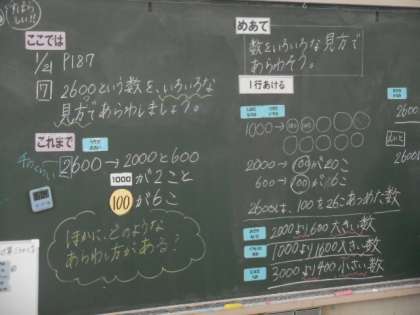 ここでは
1/21 P187
7 2600という数を、いろいろな
見方であらわしましょう。
これまで
2600→2000と600
1000が2こと
100が6こ
ほかに、どのような
あらわし方がある?
めあて
数をいろいろな見方で
あらわそう。
1行あける
1000→
2000→100が20こ
600→100が6こ
2600は、100を26こあつめた数
2000より600大きい数
1000より1600大きい数
3000より400小さい数
2600